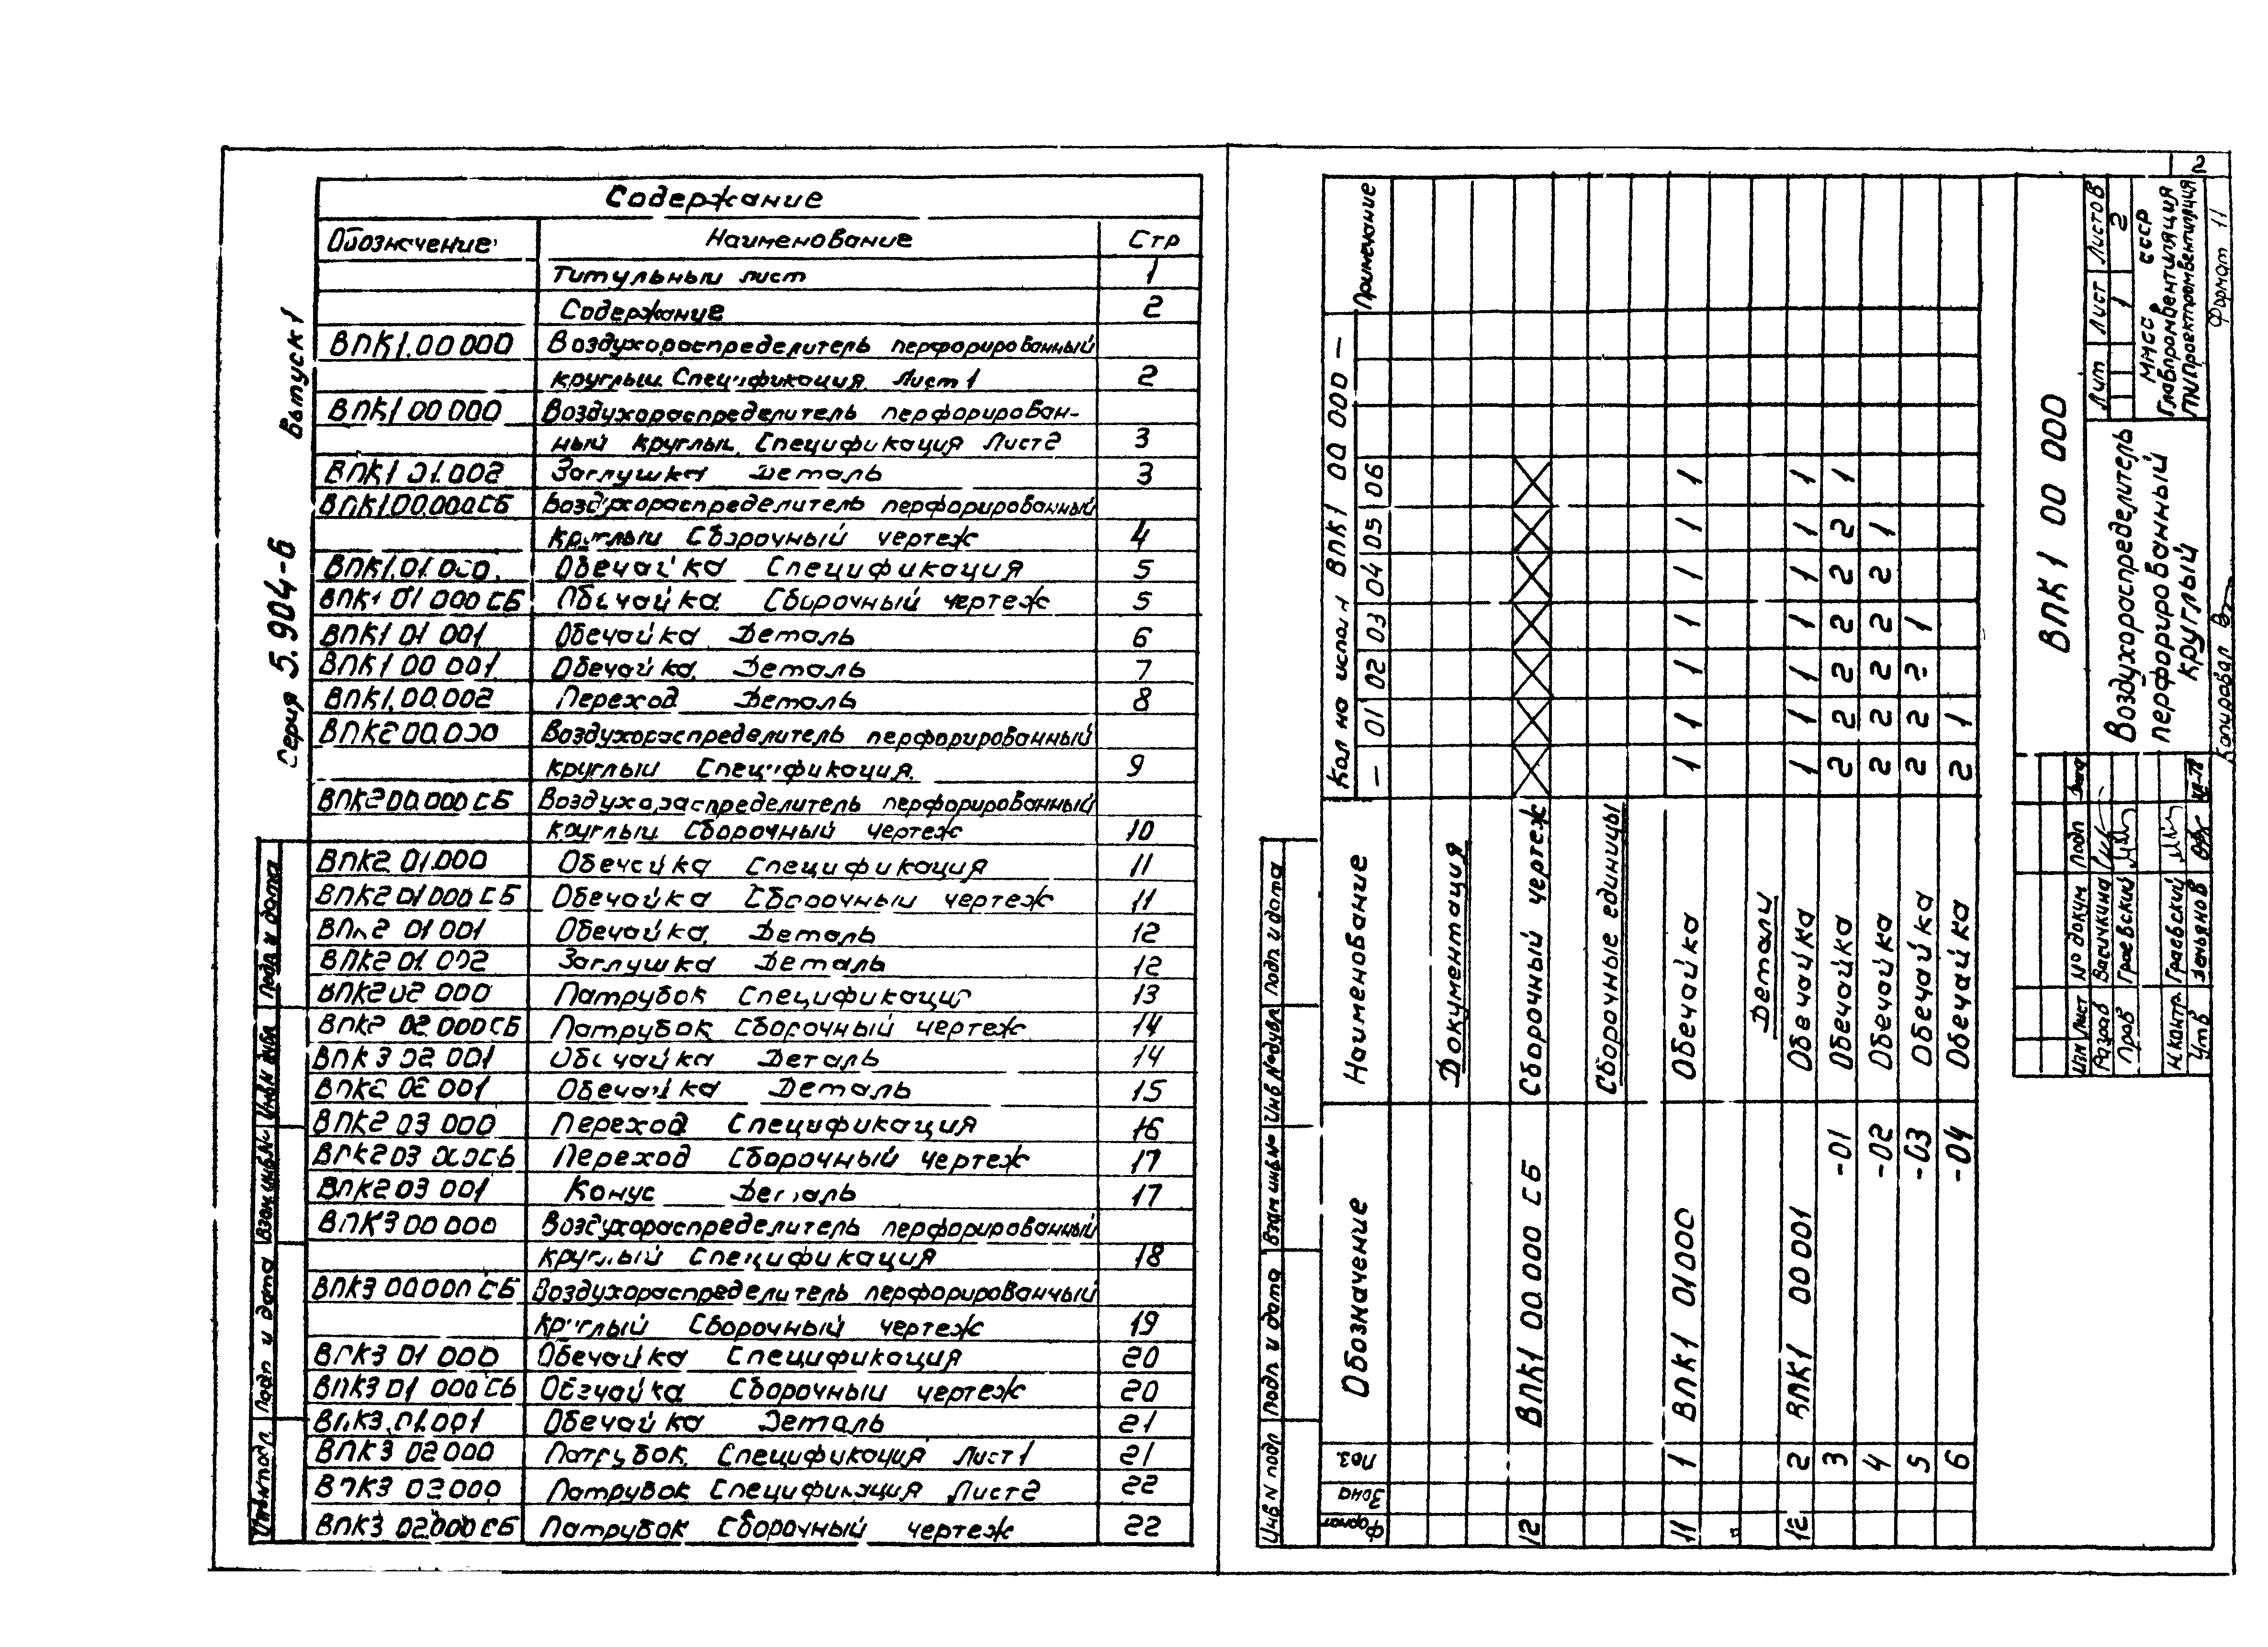 Серия 5.904-6 Выпуск 1
Содержание
Обозначение Наименование Стр
Титульный лист 1
Содержание 2
ВПК1.00 000 Воздухораспределитель перфорированный
круглый. Спецификация. Лист 1 2
ВПК1 00 000 Воздухораспределитель перфорирован-
ный круглый. Спецификация Лист 2 3
ВПК1 01.002 Заглушка Деталь 3
ВПК1.00.000СБ Воздухораспределитель перфорированный
круглый Сборочный чертеж 4
ВПК1.01.000. Обечайка Спецификация 5
ВПК1 01 000 СБ Обечайка. Сборочный чертеж 5
ВПК1 01 001 Обечайка Деталь 6
ВПК1 00 001 Обечайка. Деталь 7
ВПК1.00.002 Переход Деталь 8
ВПК2 00.000 Воздухораспределитель перфорированный
круглый Спецификация. 9
ВПК2 00.000 СБ Воздухораспределитель перфорированный
круглый Сборочный чертеж 10
ВПК2 01.000 Обечайка Спецификация 11
ВПК2 01 000 СБ Обечайка Сборочный чертеж 11
ВПК2 01 001 Обечайка. Деталь 12
ВПК2 01.002 Заглушка Деталь 12
ВПК2 02 000 Патрубок Спецификация 13
ВПК2 02 000 СБ Патрубок Сборочный чертеж 14
ВПК3 02 001 Обечайка Деталь 14
ВПК2 02 001 Обечайка Деталь 15
ВПК2 03 000 Переход Спецификация 16
ВПК2 03 000СБ Переход Сборочный чертеж 17
ВПК2 03 001 Конус Деталь 17
ВПК3 00 000 Воздухораспределитель перфорированный
круглый Спецификация 18
ВПК3 00 000 СБ Воздухораспределитель перфорированный
круглый Сборочный чертеж 19
ВПК3 01 000 Обечайка Спецификация 20
ВПК3 01 000 СБ Обечайка Сборочный чертеж 20
ВПК3.01.001 Обечайка Деталь 21
ВПК3 02 000 Патрубок. Спецификация Лист 1 21
ВПК3 02 000 Патрубок Спецификация Лист 2 22
ВПК3 02.000 СБ Патрубок Сборочный чертеж 22
Инв N подл Подп и дата Взам инв N Инв N дубл Подп и дата
2
Инв N подл Подп и дата Взам инв № Инв № дубл Подп и дата
Формат Зона Поз. Обозначение Наименование Кол на исполн ВПК1 00 000 — Примечание
— 01 02 03 04 05 06
Документация
12 ВПК1 00.000 СБ Сборочный чертеж
Сборочные единицы
11 1 ВПК1 01000 Обечайка 1 1 1 1 1 1 1
Детали
12 2 ВПК1 00 001 Обечайка 1 1 1 1 1 1 1
3 -01 Обечайка 2 2 2 2 2 2 1
4 -02 Обечайка 2 2 2 2 2 1
5 -03 Обечайка 2 2 2 1
6 -04 Обечайка 2 1
ВПК 1 00 000
Изм Лист № докум Подп Дата
Разраб Васичкина
Пров Граевский
Н.контр Граевский
Утв
Воздухораспределитель
перфорированный
круглый
Лит Лист Листов
1 2
ММСС СССР
Главпромвентиляция
ГПИ Проектпромвентиляция
Копировал
Формат 11